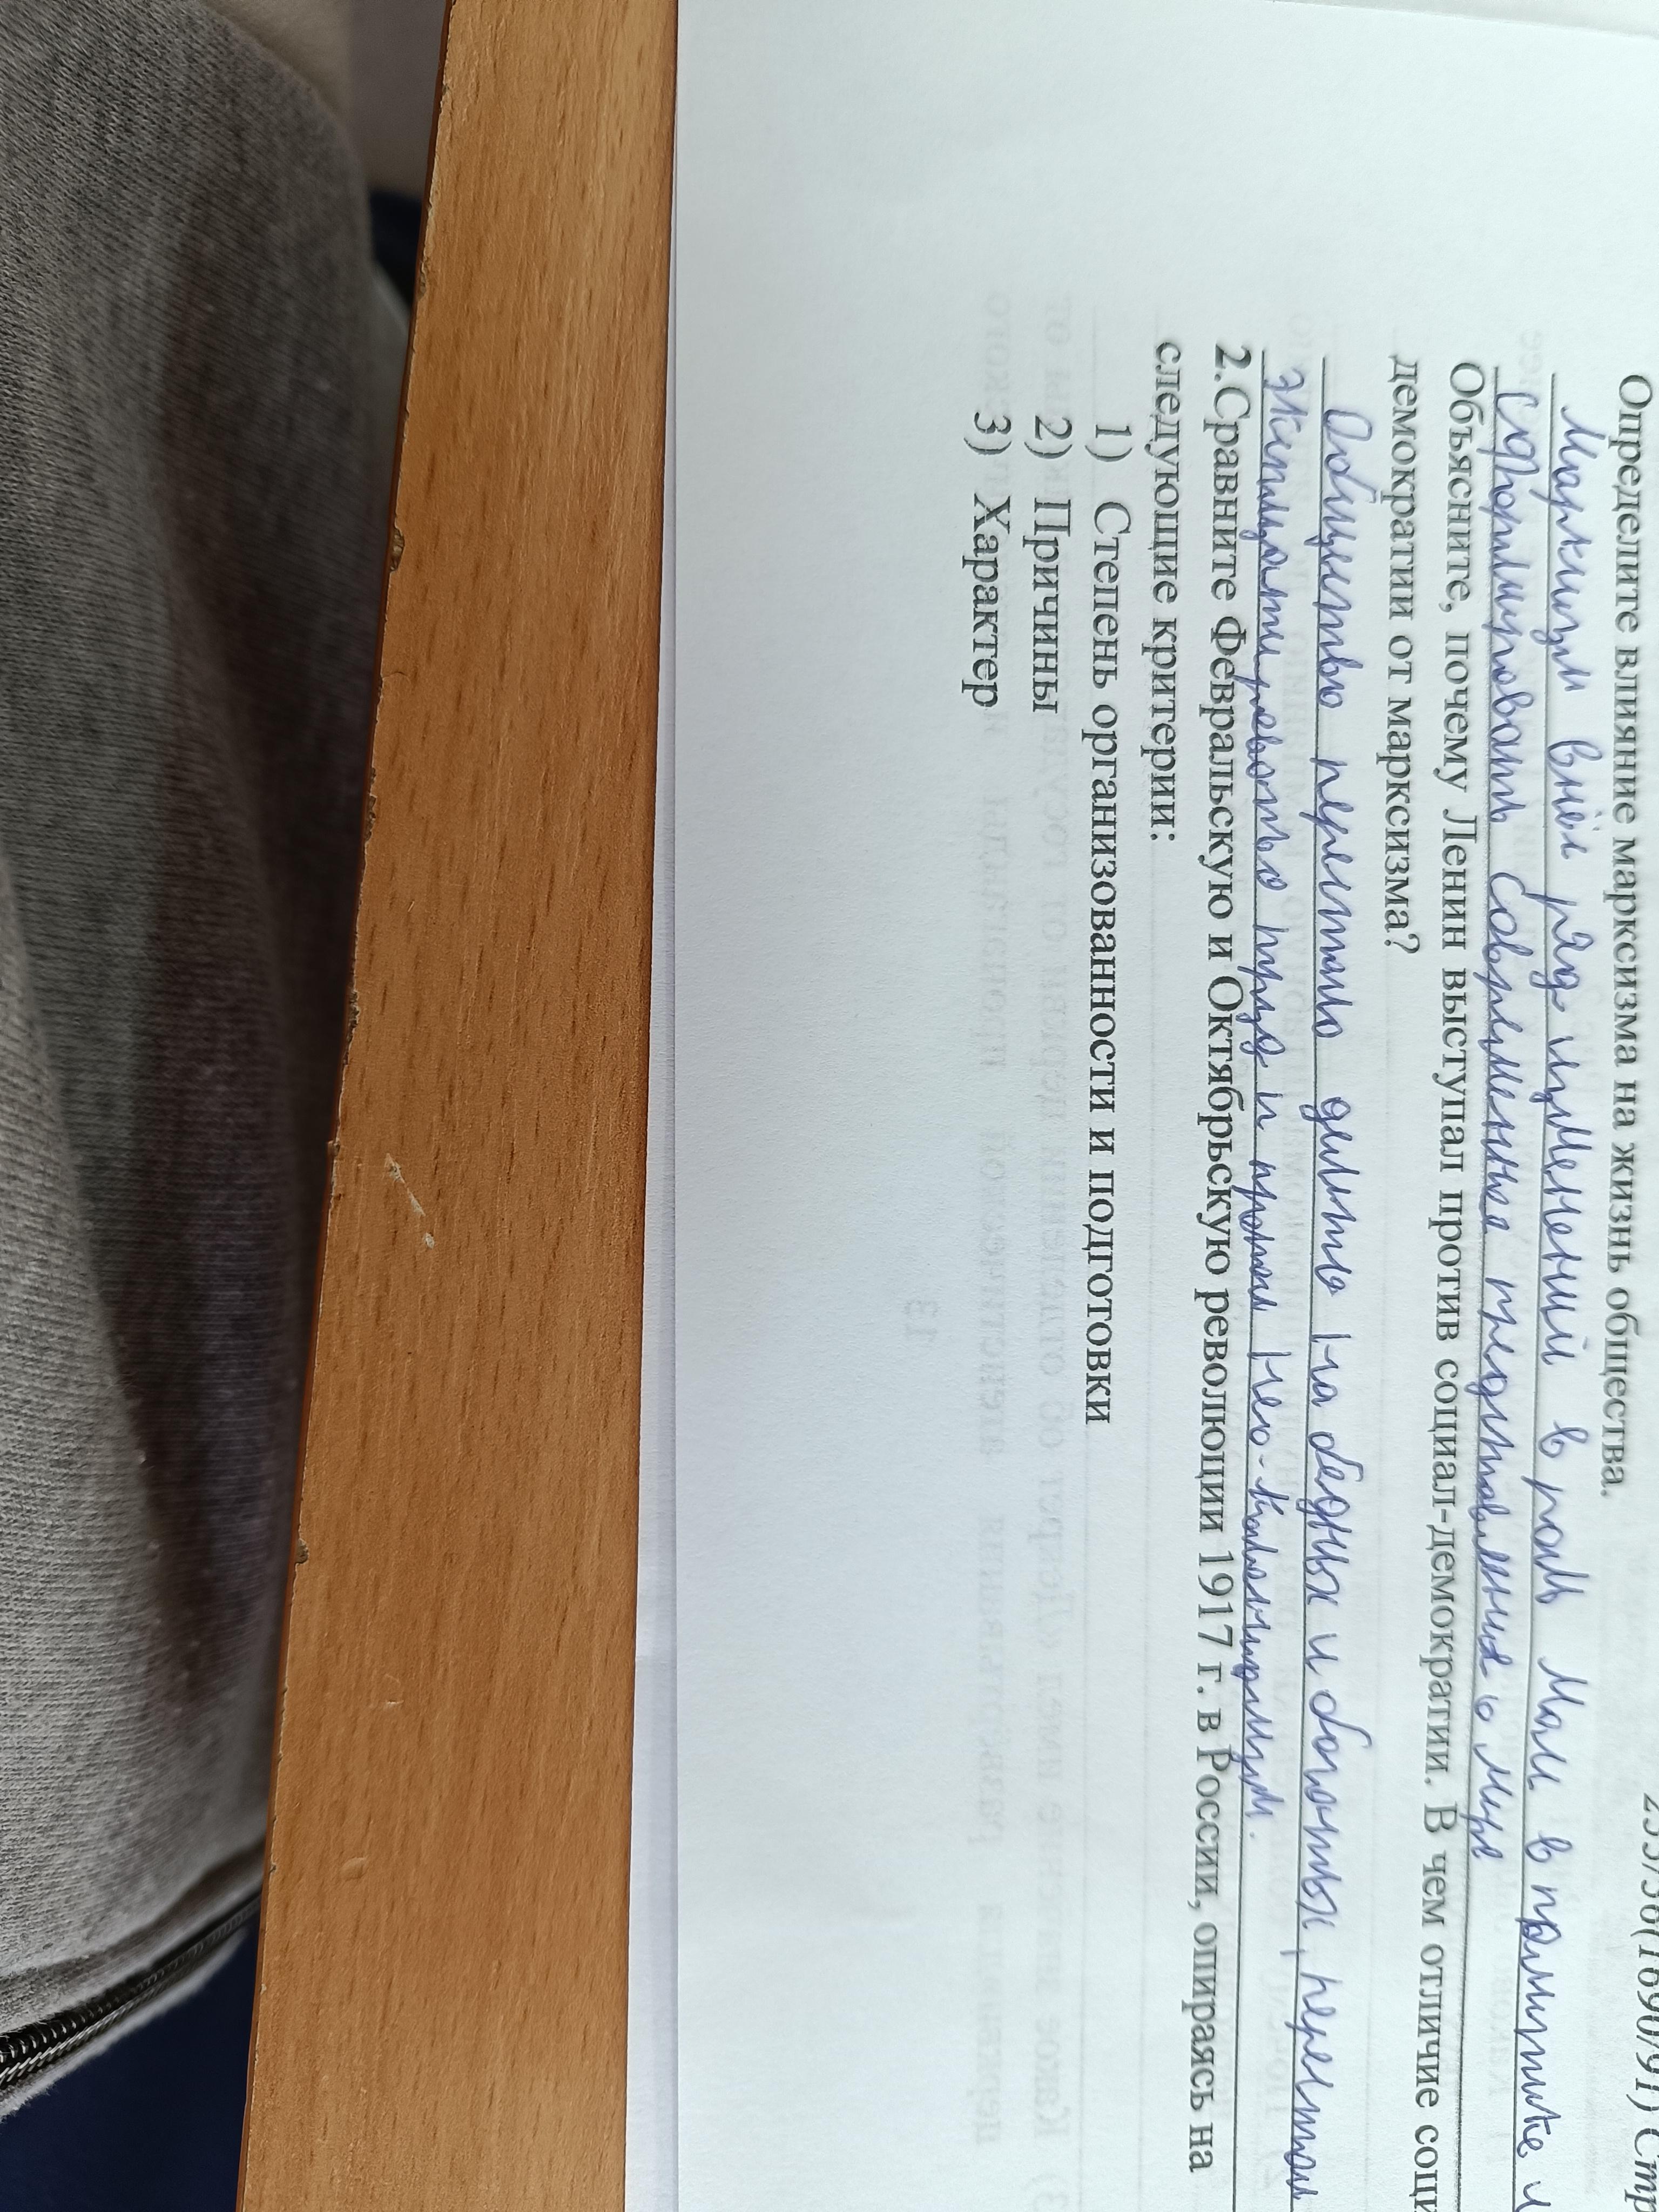 Стр
Определите влияние марксизма на жизнь общества.
Марксизм внёс ряд изменений в роль масс в политике и
сформировать современные представления о мире
Объясните, почему Ленин выступал против социал-демократии. В чем отличие соци
демократии от марксизма?
Общество перестало делить на бедных и богатых, перестал
эксплуатировать труд и прошёл нео-капитализм.
2.Сравните Февральскую и Октябрьскую революции 1917 г. в России, опираясь на
следующие критерии:
1) Степень организованности и подготовки
2) Причины
3) Характер